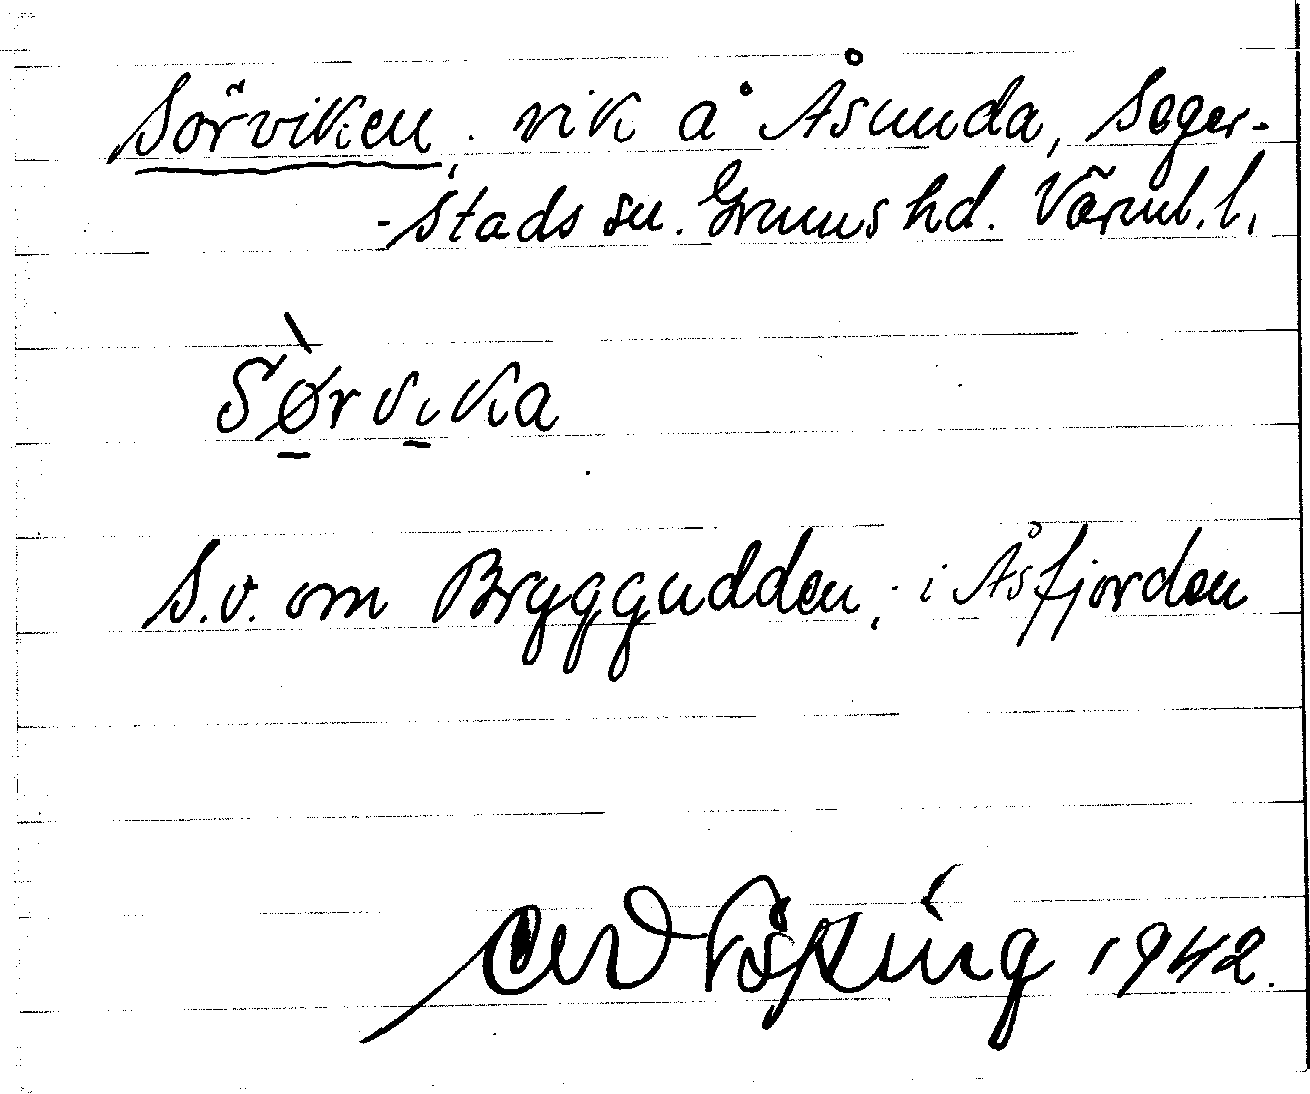 Sörviken, vik å Åsunda, Seger-
-stads sn. Grums hd. Värml. l.
Sørvika
S.v. om Bryggudden, i Åsfjorden
1942.